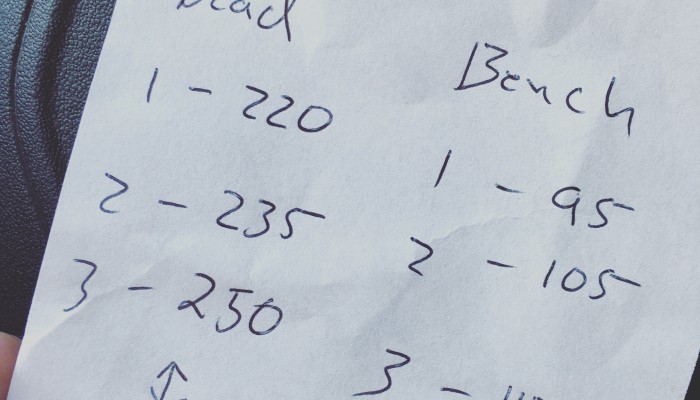 Dead
1 - 220
2 - 235
3 - 250
Bench
1 - 95
2 - 105
3 -